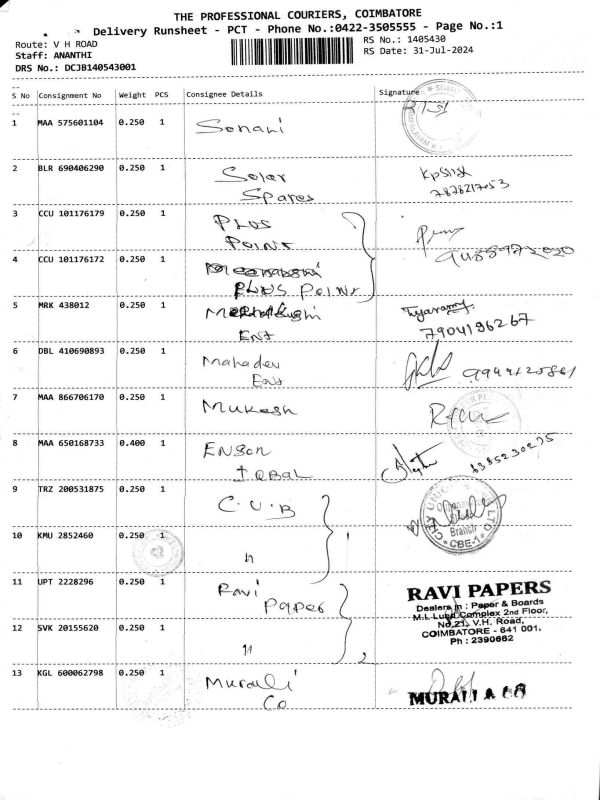 THE PROFESSIONAL COURIERS, COIMBATORE
Delivery Runsheet - PCT - Phone No.:0422-3505555 - Page No.:1
Route: V H ROAD
RS No.: 1405430
Staff: ANANTHI
RS Date: 31-Jul-2024
DRS No.: DCJB140543001
S No Consignment No Weight PCS Consignee Details Signature
1 MAA 575601104 0.250 1 Sonani
2 BLR 690406290 0.250 1 Solar
Spares
3 CCU 101176179 0.250 1 PLUS
POINT
4 CCU 101176172 0.250 1
PLUS POINT
5 MRK 438012 0.250 1
Ent 7904196267
6 DBL 410690893 0.250 1 Mahadev
Ent
7 MAA 866706170 0.250 1 Mukesh
8 MAA 650168733 0.400 1 ENSON 6385230295
IQBAL
9 TRZ 200531875 0.250 1 C.U.B
Branch
CBE-1
10 KMU 2852460 0.250 1 "
1
11 UPT 2228296 0.250 1 Ravi
Paper
RAVI PAPERS
Dealers in : Paper & Boards
M.L Complex 2nd Floor,
No.21, V.H. Road,
COIMBATORE - 641 001.
Ph : 2390662
12 SVK 20155620 0.250 1 "
2
13 KGL 600062798 0.250 1 Murali
Co
MURALI & CO